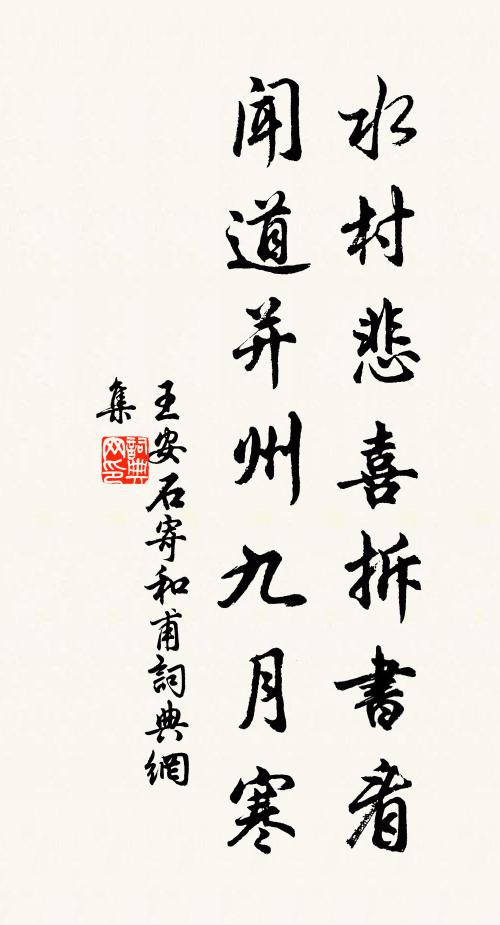 水村悲喜拆書看
聞道并州九月寒
王安石寄和甫詞典網
集
詞典網印